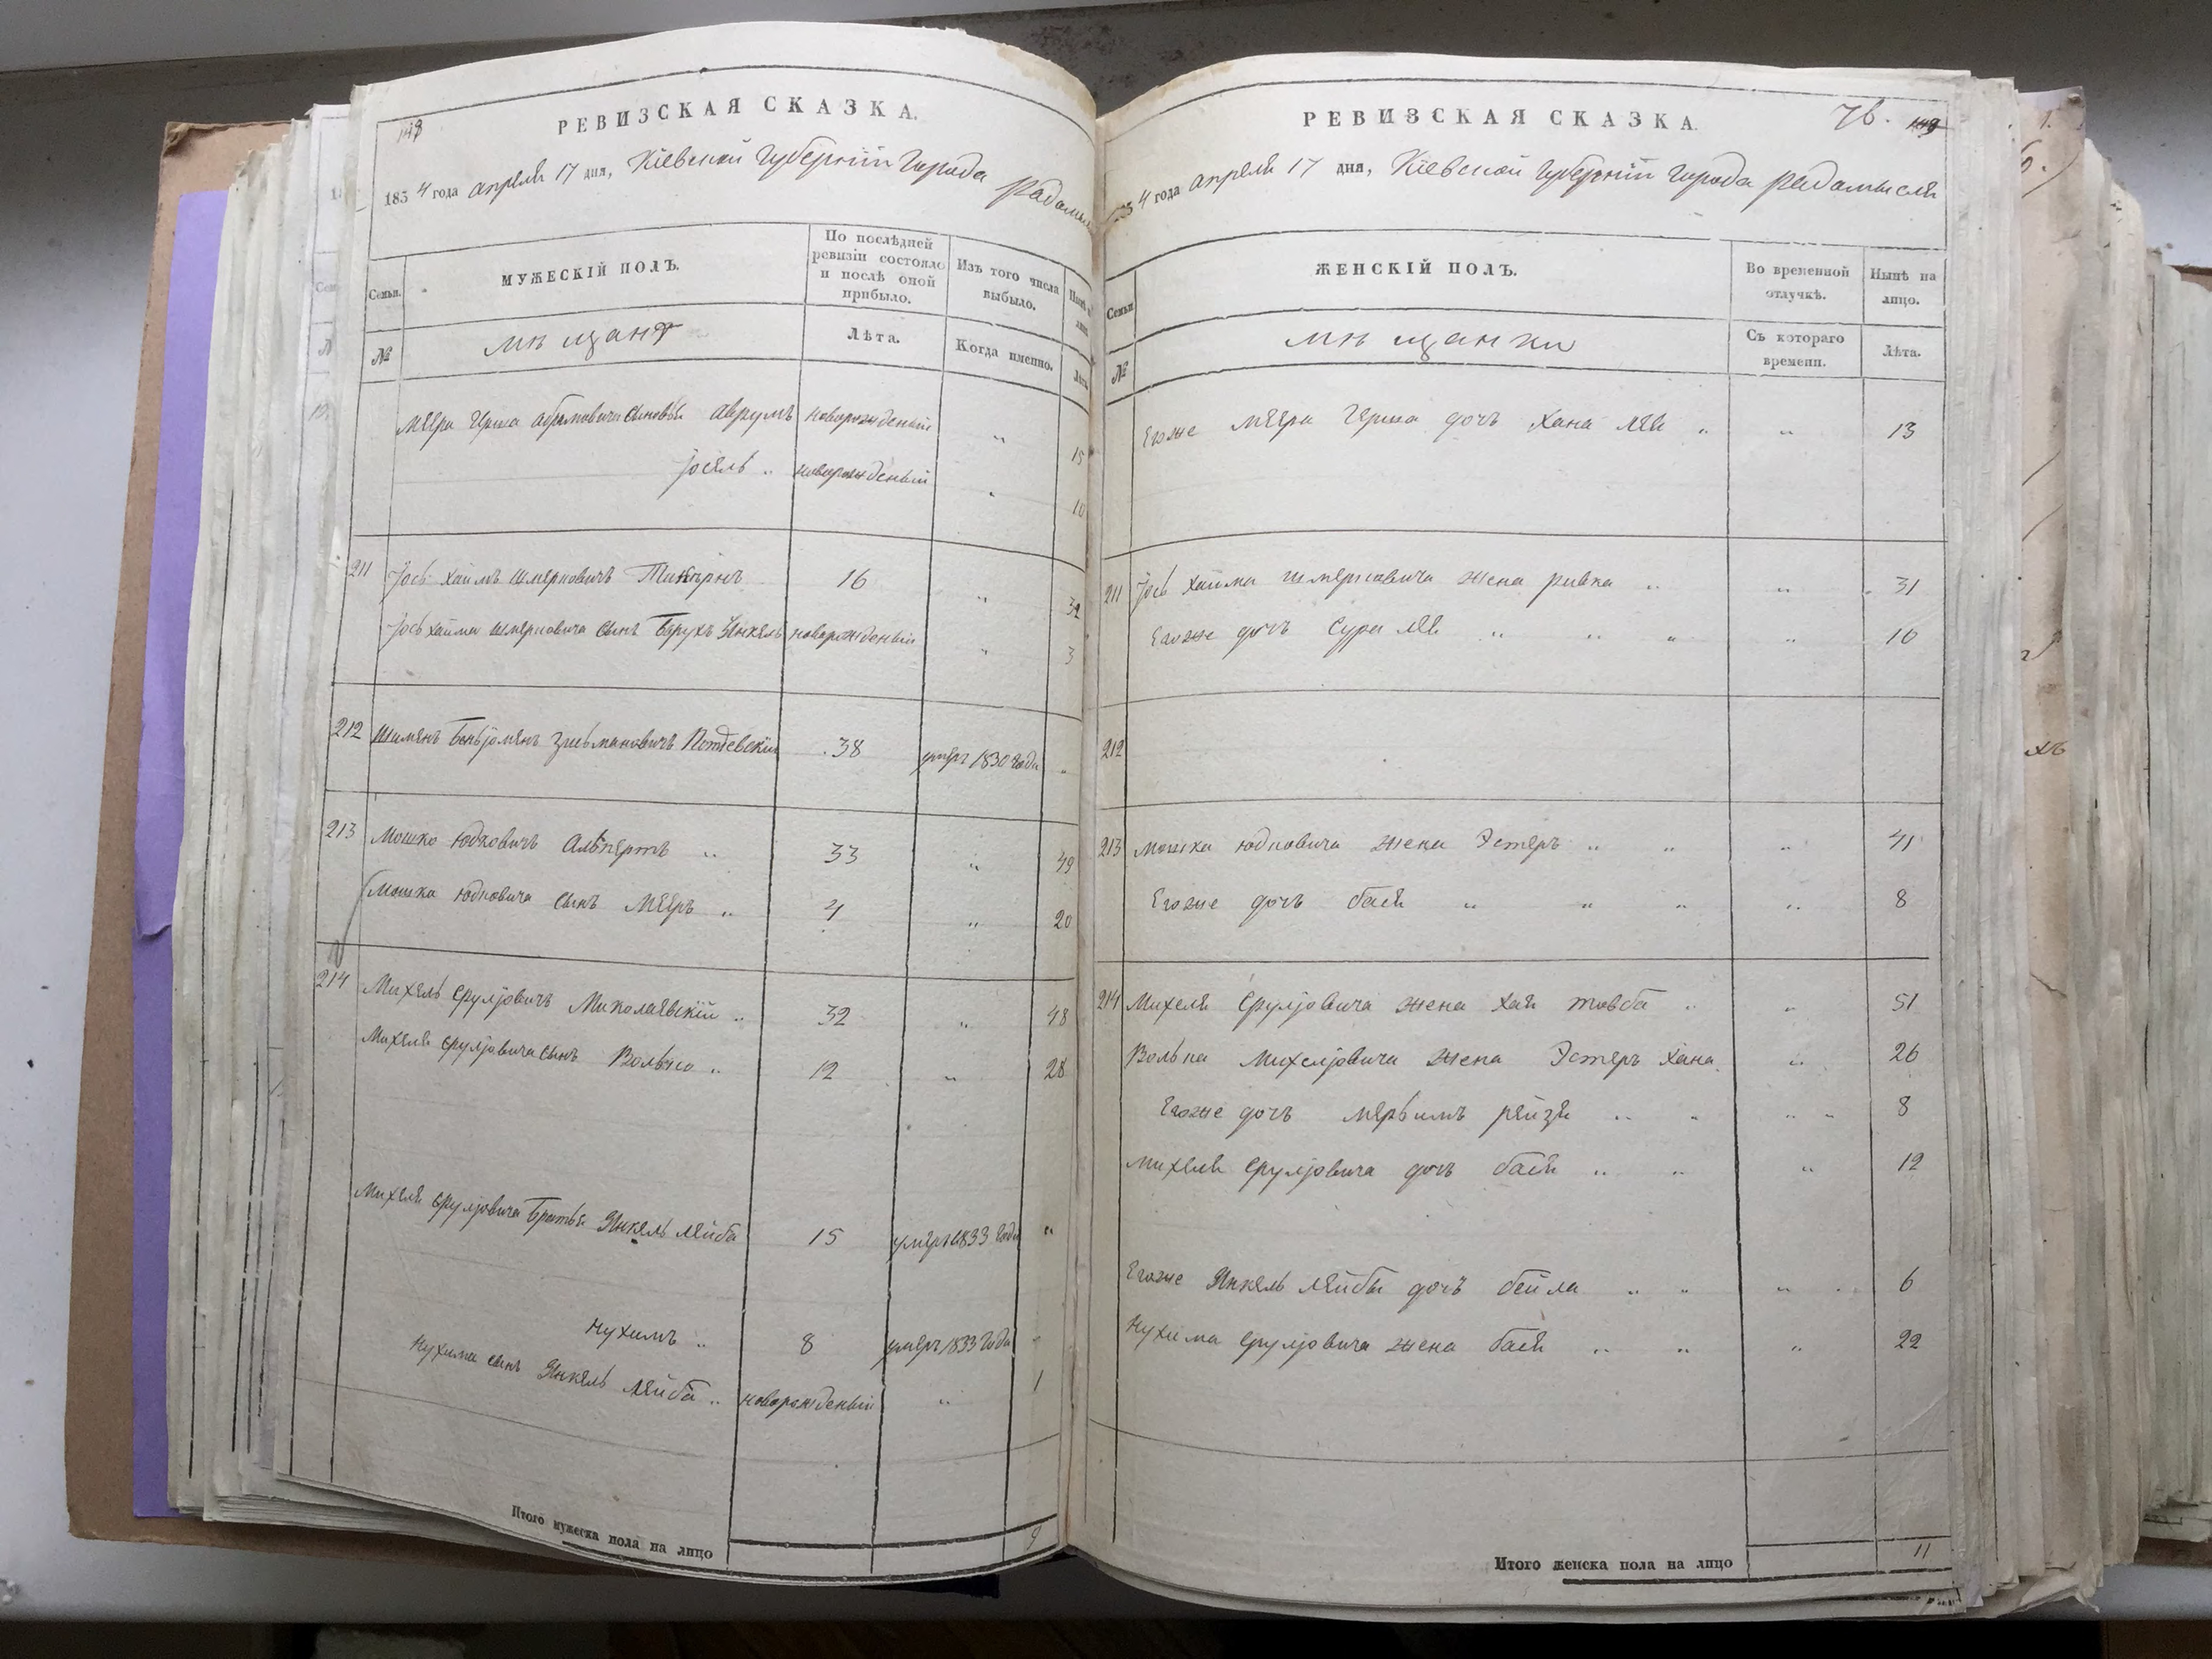 148
РЕВИЗСКАЯ СКАЗКА.
1854 года апреля 17 дня, Кіевской Губерніи Города Радомы
Семьи.
МУЖЕСКІЙ ПОЛЪ.
По послѣдней ревизіи состояло и послѣ оной прибыло.
Изъ того числа выбыло.
№
мѣщанъ
Лѣта.
Когда именно.
Меера Герша Абрамовича сыновья Аврумъ новорожденый " 15
Іосель " новорожденый " 10
211 Іось Хаимъ Шмерковичъ 16 " 32
Іось Хаима Шмерковича сынъ Борухъ Янкель новорожденый " 3
212 Шимонъ Беньіоминъ Зисьмановичъ 38 умеръ 1830 года "
213 Мошко Юдковичъ Альпертъ " 33 " 49
Мошка Юдковича сынъ Мееръ " 4 " 20
214 Михель Сруліовичъ Миколаевскій " 32 " 48
Михеля Сруліовича сынъ Волько " 12 " 28
Михеля Сруліовича братья Янкель Лейба 15 умеръ 1833 года "
Нухимъ " 8 умеръ 1833 года "
Нухима сынъ Янкель Лейба " новорожденый " 1
Итого мужеска пола на лицо 9
РЕВИЗСКАЯ СКАЗКА.
76. 149
1854 года апреля 17 дня, Кіевской Губерніи Города Радомысля
Семьи
ЖЕНСКІЙ ПОЛЪ.
Во временной отлучкѣ.
Нынѣ на лицо.
№
мѣщанки
Съ котораго времени.
Лѣта.
Егоже Меера Герша дочь Хана Лея " " 13
211 Іось Хаима Шмерковича жена Ривка " " 31
Егоже дочь Сура Лея " " " " 10
212
213 Мошка Юдковича жена Эстеръ " " " 41
Егоже дочь Бася " " " " 8
214 Михеля Сруліовича жена Хая Товба " " 51
Волька Михеліовича жена Эстеръ Хана " 26
Егоже дочь Мерьимъ Рейзя " " " " 8
Михеля Сруліовича дочь Бася " " " 12
Егоже Янкель Лейбы дочь Бейла " " " " 6
Нухима Сруліовича жена Бася " " " 22
Итого женска пола на лицо 11